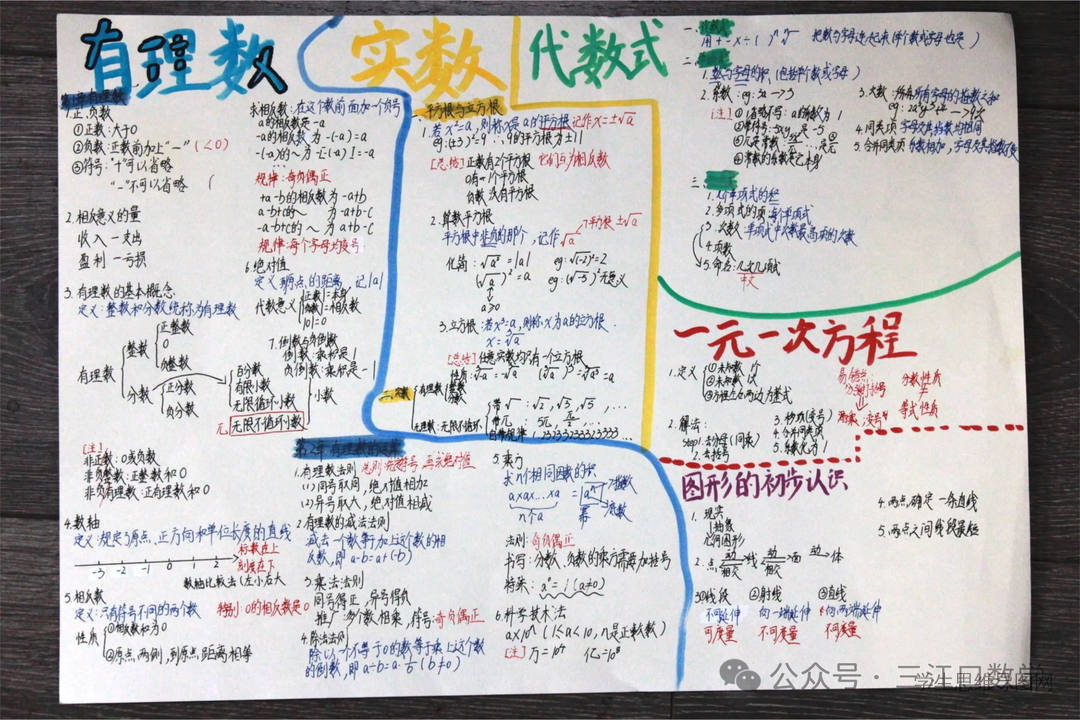 有理数
第1章有理数
1.正、负数
①正数:大于0
②负数:正数前加上"-" (<0)
③符号:"+"可以省略
"-"不可以省略
2.相反意义的量
收入—支出
盈利—亏损
3.有理数的基本概念
定义:整数和分数统称为有理数
有理数
整数
正整数
0
负整数
分数
正分数
负分数
百分数
有限小数
无限循环小数
小数
无限不循环小数
[注]
非正数:0或负数
非负整数:正整数和0
非负有理数:正有理数和0
4.数轴
定义:规定了原点、正方向和单位长度的直线
-3 -2 -1 0 1 2 3
标数在上
刻度在下
数轴比较法(左小右大
5.相反数
定义:只有符号不同的两个数
特别:0的相反数是0
性质
①相反数和为0
②原点两侧,到原点距离相等
求相反数:在这个数前面加一个负号
a的相反数是-a
-a的相反数为-(-a)=a
-(-a)的~为-[-(-a)]=-a
...
规律:奇负偶正
+a-b的相反数为-a+b
a-b+c的~为-a+b-c
-a-b+c的~为a+b-c
规律:每个字母均换号
6.绝对值
定义:到原点的距离,记|a|
代数意义
|正数|=本身
|负数|=相反数
|0|=0
7.倒数与负倒数
倒数:乘积是1
负倒数:乘积是-1
第2章 有理数的运算
1.有理数法则
(1)同号取同,绝对值相加
(2)异号取大,绝对值相减
2.有理数的减法法则
减去一个数等于加上这个数的相
反数,即a-b=a+(-b)
3.乘法法则
同号得正,异号得负
推广:多个数相乘,符号:奇负偶正
4.除法法则
除以一个不等于0的数等于乘上这个数
的倒数,即a÷b=a·1/b(b≠0)
5.乘方
求n个相同因数的积
a×a×...×a =aⁿ
n个a
指数
底数
幂
法则:奇负偶正
书写:分数、负数的乘方需要加括号
特殊:a⁰=1(a≠0)
6.科学技术法
a×10ⁿ(1≤a<10,n是正整数)
[注]万=10⁴ 亿=10⁸
实数
一、平方根与立方根
1.若x²=a,则称x是a的平方根 记作x=±√a
eg:(±3)²=9 ∴9的平方根为±3
[总结]正数有2个平方根 它们互为相反数
0有一个平方根
负数没有平方根
2.算数平方根
平方根中非负的那个,记作√a
平方根±√a
化简:√a²=|a| eg:√(-2)²=2
(√a)²=a eg:(√-5)²无意义
a≥0
3.立方根:若x³=a,则称x为a的立方根
x=³√a
[总结]任意实数均只有一个立方根
二、实数
有理数
整数
分数
无限不循环
带√:√2,√3,√5,...
自带规律
代数式
用+-×÷()ⁿ √ 把数与字母连起来(单个数或字母也是)
1.数与字母的积(包括单个数或字母)
2.系数:eg:3a→3
[注]
3.次数:所有字母的指数之和
4.同类项:字母及其指数均相同
5.合并同类项:系数相加,字母及其指数不变
三、
1.几个单项式的和
2.多项式的项:每个单项式
3.次数:单项式中次数最高项的次数
4.项数
5.命名:几次几项式
中文
一元一次方程
1.定义
①未知数1个
②未知数1次
③方程左右两边为整式
2.解法:
step1.去分母(同乘)
2.去括号
3.移项(变号)
4.合并同类项
5.系数化为1
易错点
分数性质
等式性质
图形的初步认识
1.现实
抽象
几何图形
2.点 动 线 动 面 动 体
相交 相交
3.①线段 ②射线 ③直线
不可延伸 向一端延伸 向两端延伸
可度量 不可度量 不可度量
4.两点确定一条直线
5.两点之间线段最短
公众号·三江口数学
学生思维导图网